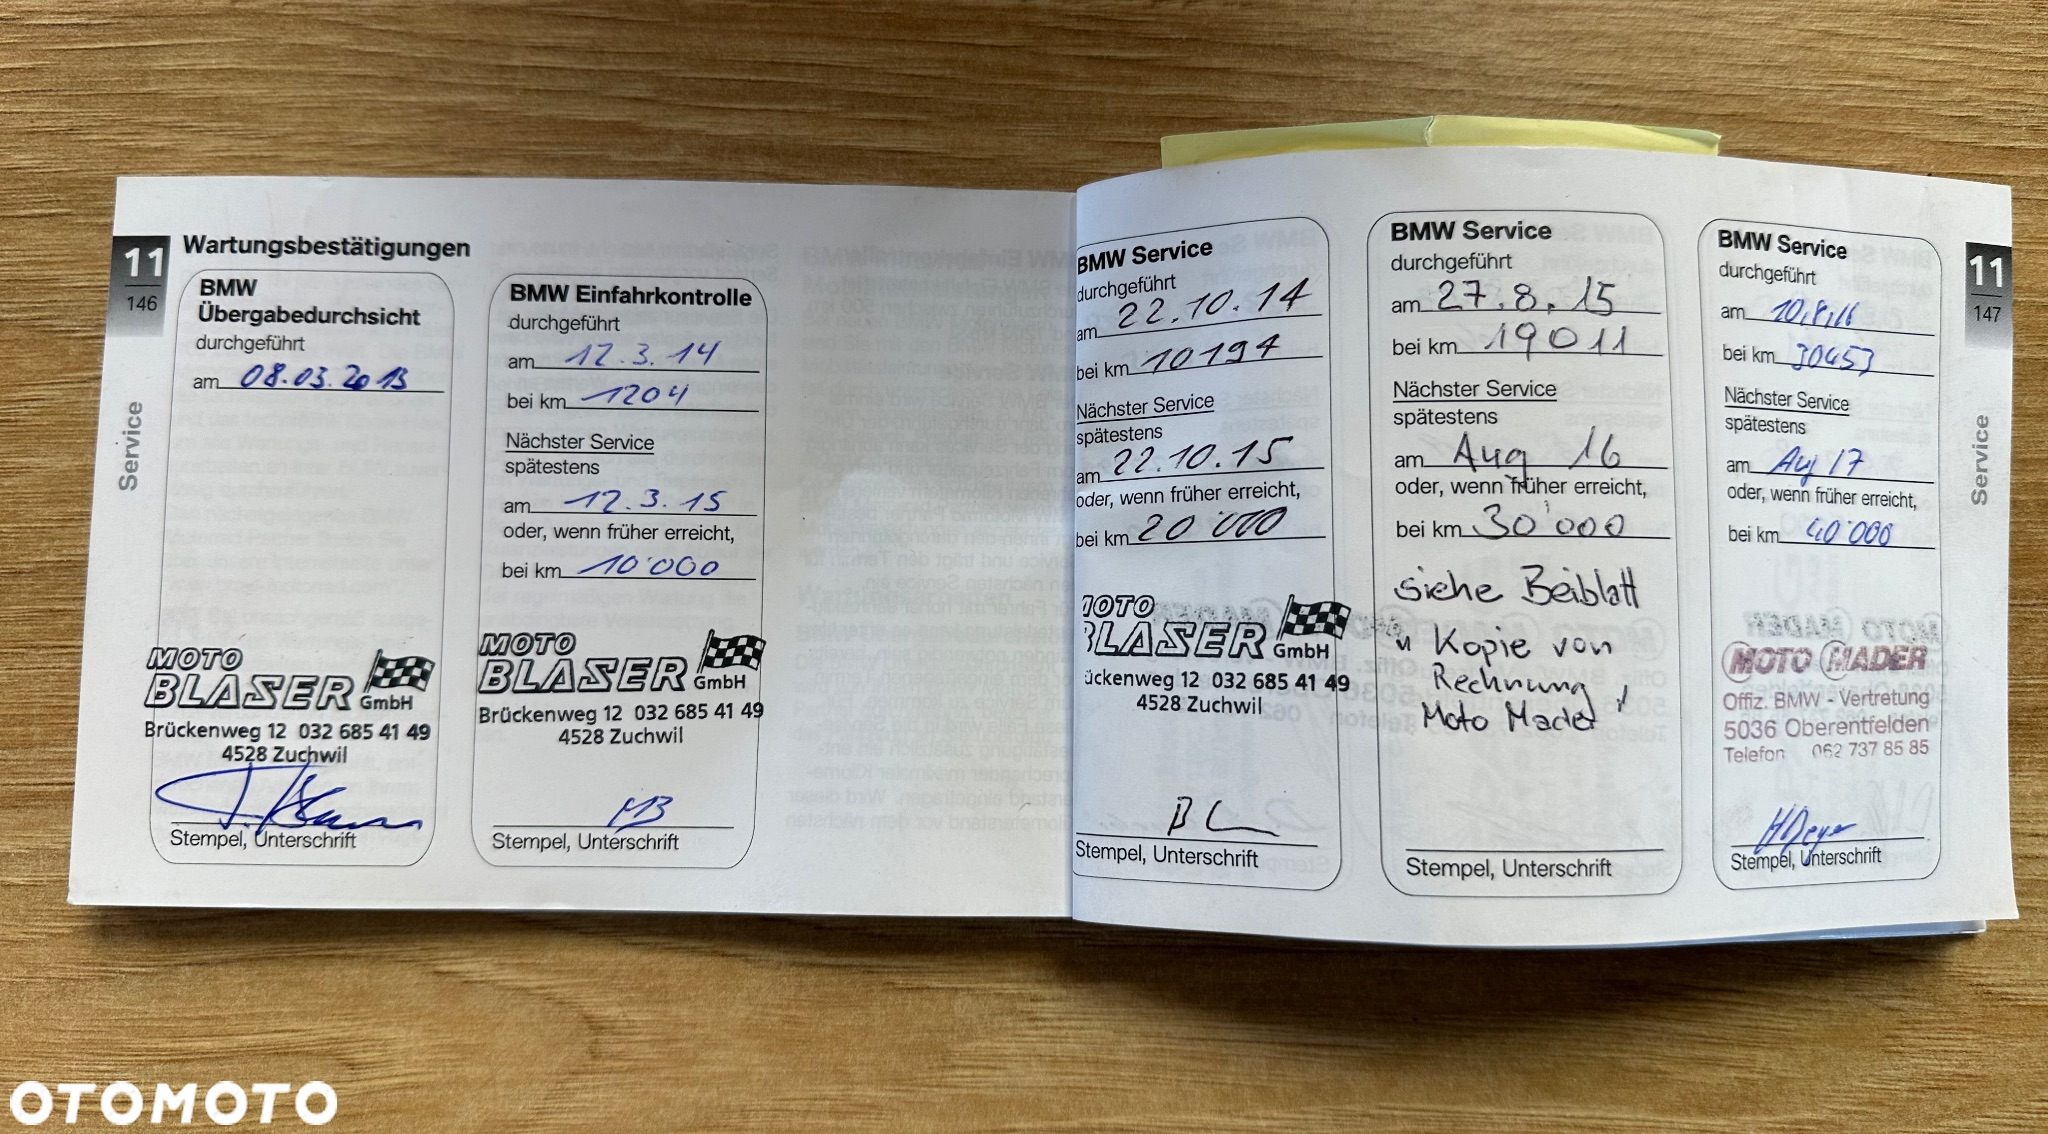 11
146
Service
Wartungsbestätigungen
BMW
Übergabedurchsicht
durchgeführt
am 08.03.2013
MOTO
BLASER GmbH
Brückenweg 12 032 685 41 49
4528 Zuchwil
Stempel, Unterschrift
BMW Einfahrkontrolle
durchgeführt
am 12.3.14
bei km 1204
Nächster Service
spätestens
am 12.3.15
oder, wenn früher erreicht,
bei km 10'000
MOTO
BLASER GmbH
Brückenweg 12 032 685 41 49
4528 Zuchwil
Stempel, Unterschrift
BMW Service
durchgeführt
am 22.10.14
bei km 10197
Nächster Service
spätestens
am 22.10.15
oder, wenn früher erreicht,
bei km 20'000
MOTO
BLASER GmbH
ückenweg 12 032 685 41 49
4528 Zuchwil
Stempel, Unterschrift
BMW Service
durchgeführt
am 27.8.15
bei km 19011
Nächster Service
spätestens
am Aug 16
oder, wenn früher erreicht,
bei km 30'000
siehe Beiblatt
u Kopie von
Rechnung
Moto Mader
Stempel, Unterschrift
BMW Service
durchgeführt
am 10.8.16
bei km 30453
Nächster Service
spätestens
am Aug 17
oder, wenn früher erreicht,
bei km 40'000
MOTO MADER
Offiz. BMW - Vertretung
5036 Oberentfelden
Telefon 062 737 85 85
Stempel, Unterschrift
11
147
Service
OTOMOTO